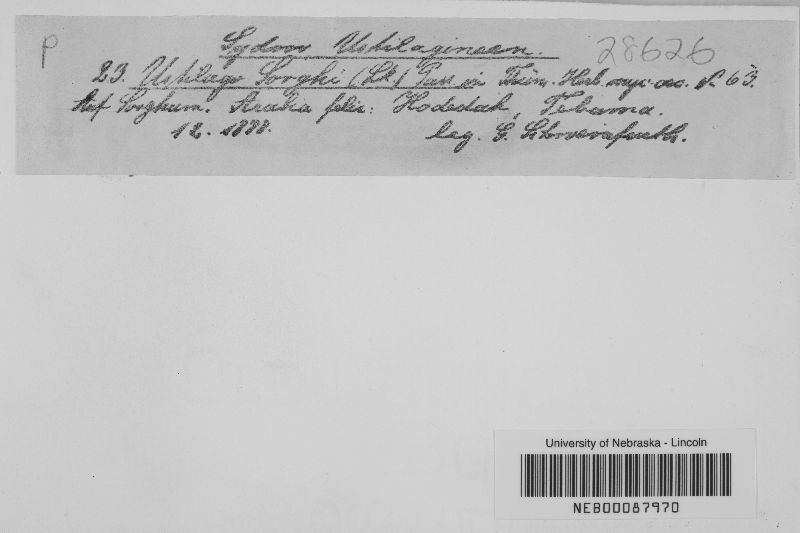 P
Sydow Ustilagineen. 28626
23. Ustilago Sorghi (Lk.) Pass. in Thüm. Herb. myc. oec. N. 63.
Auf Sorghum. Arabia felix: Hodedah, Tebama.
12. 1888. leg. G. Schweinfurth.
University of Nebraska - Lincoln
NEB00087970